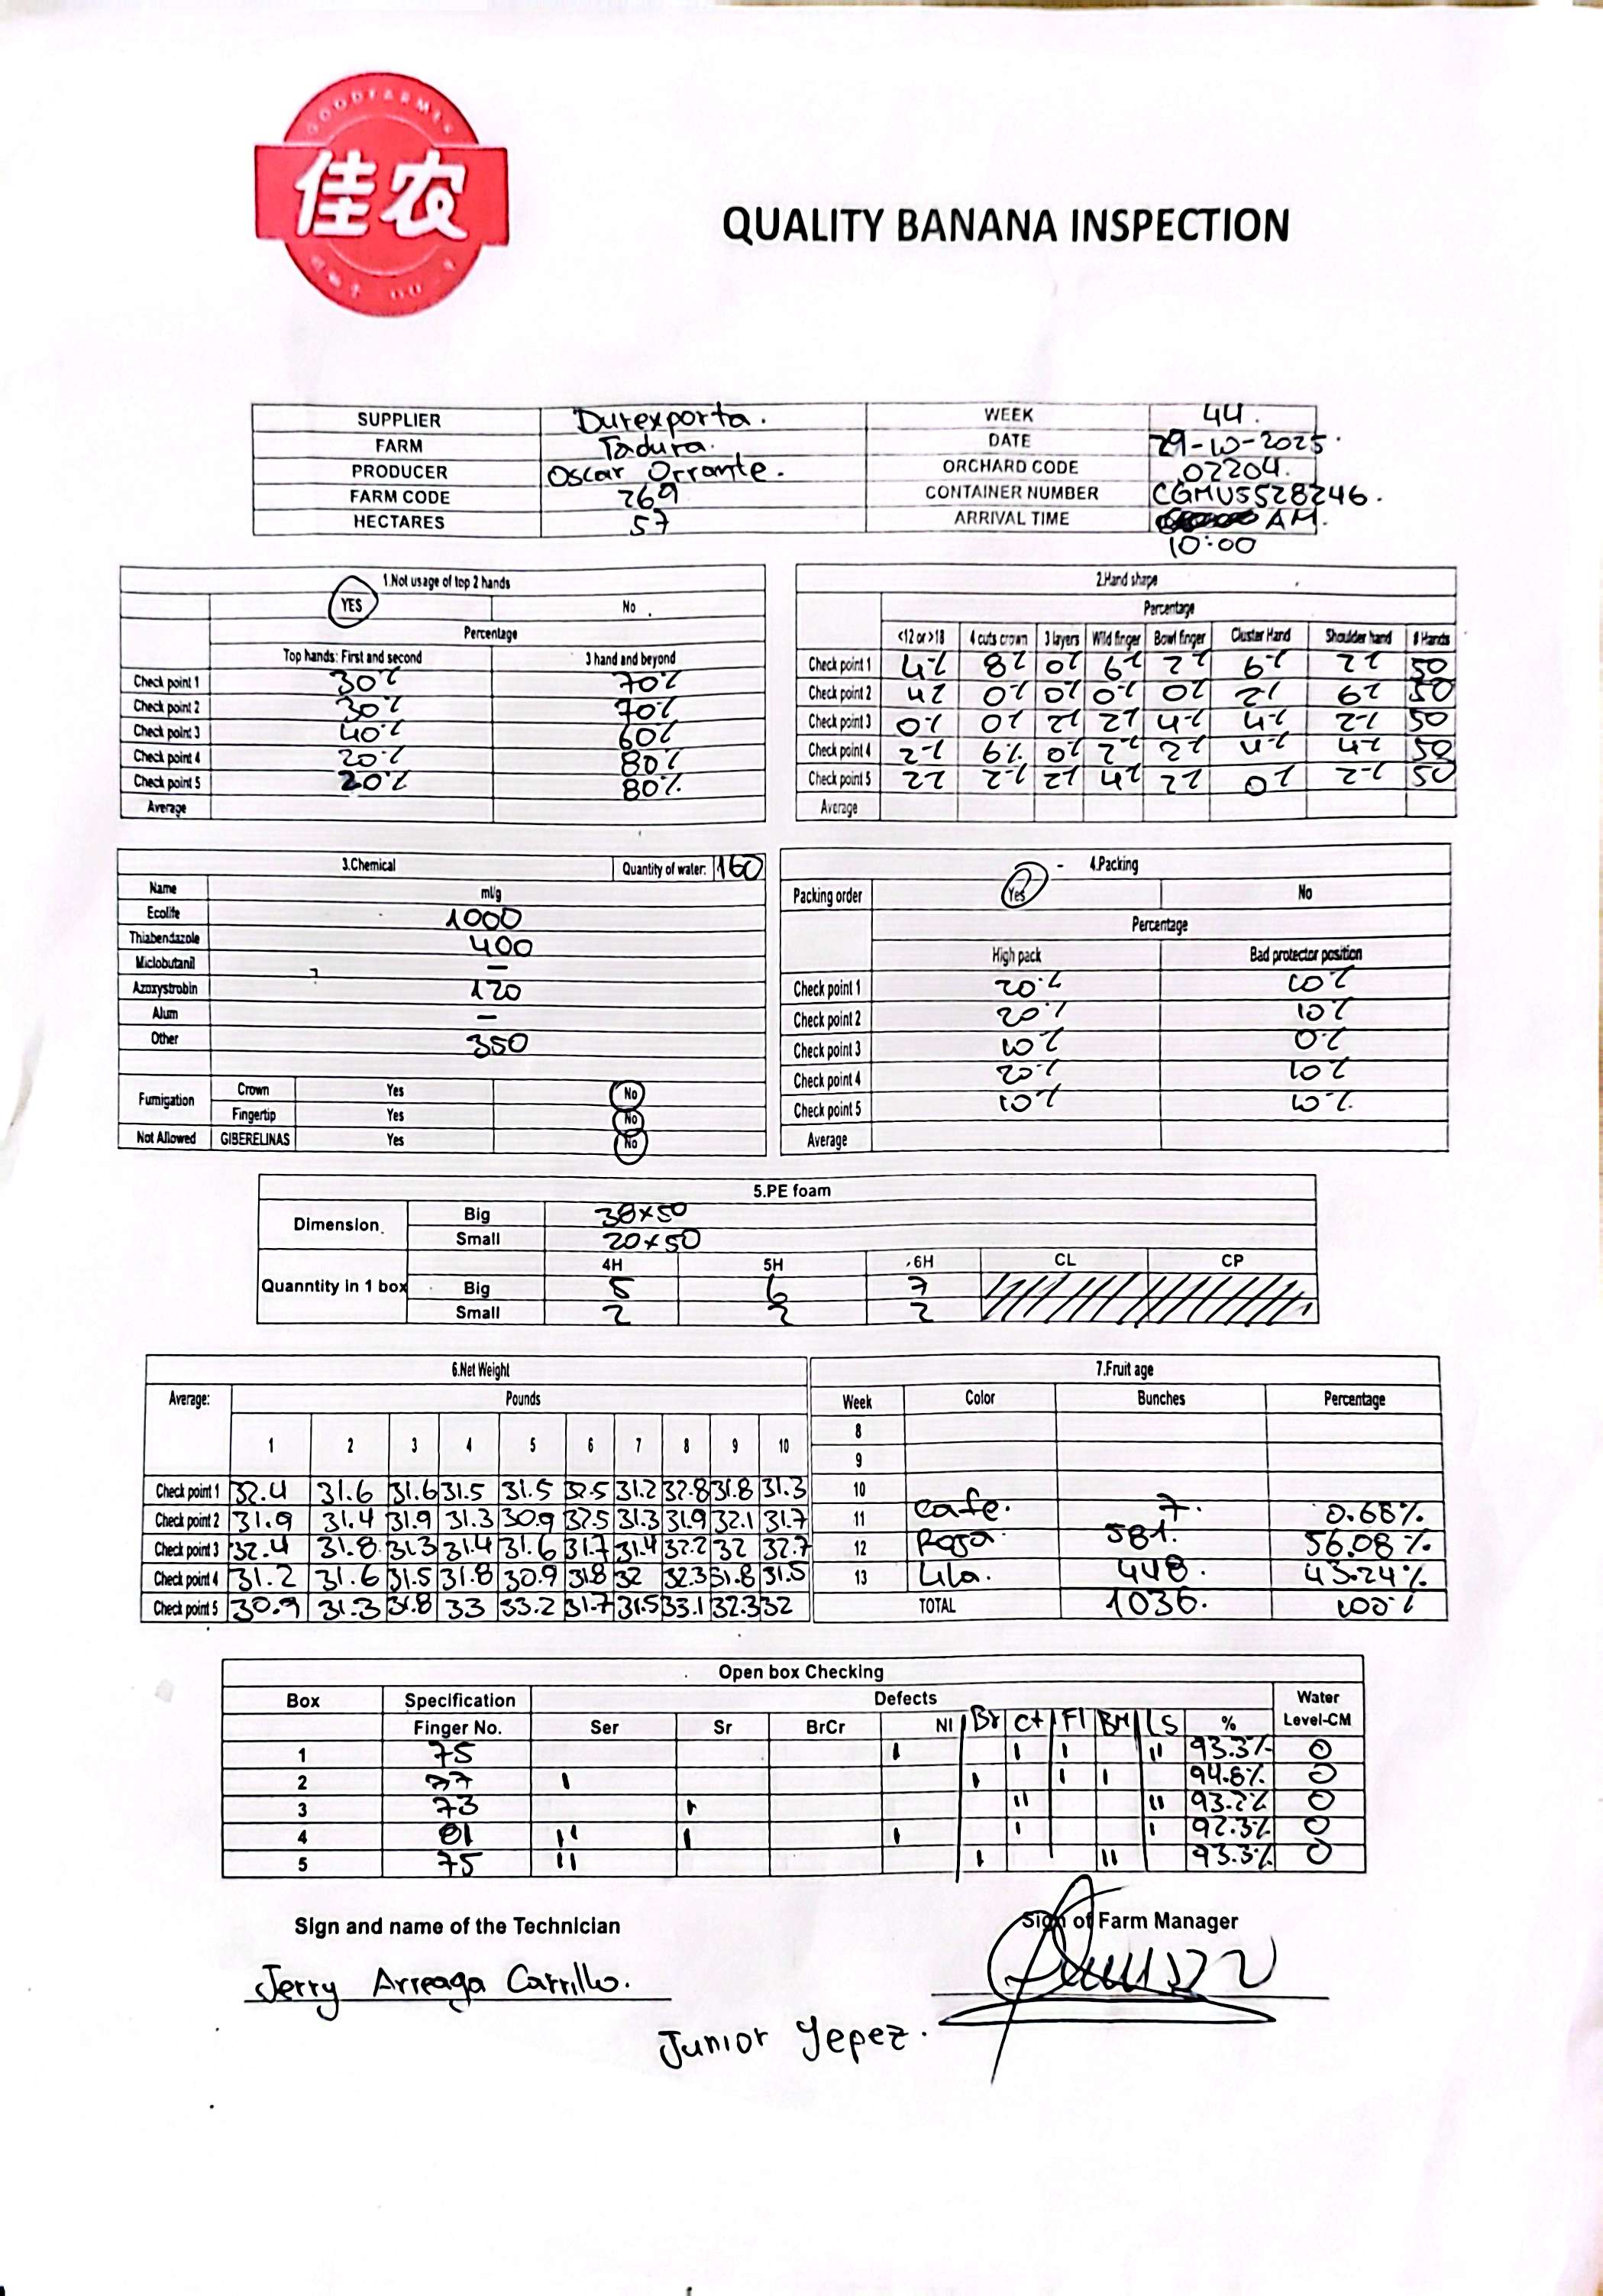 GOODFARMER
佳农
QUALITY BANANA INSPECTION
SUPPLIER Durexporta. WEEK 44.
FARM Tadura. DATE 29-10-2025.
PRODUCER Oscar Orrante. ORCHARD CODE 02204.
FARM CODE 269 CONTAINER NUMBER CGMU5528246.
HECTARES 57 ARRIVAL TIME AM.
10:00
1.Not usage of top 2 hands
YES No
Percentage
Top hands: First and second 3 hand and beyond
Check point 1 30% 70%
Check point 2 30% 70%
Check point 3 40% 60%
Check point 4 20% 80%
Check point 5 20% 80%
Average
2.Hand shape
Percentage
<12 or >18 4 cuts crown 3 layers Wild finger Bowl finger Cluster Hand Shoulder hand # Hands
Check point 1 4% 8% 0% 6% 2% 6% 2% 50
Check point 2 4% 0% 0% 0% 0% 2% 6% 50
Check point 3 0% 0% 2% 2% 4% 4% 2% 50
Check point 4 2% 6% 0% 2% 2% 4% 4% 50
Check point 5 2% 2% 2% 4% 2% 0% 2% 50
Average
3.Chemical Quantity of water: 160
Name ml/g
Ecolife 1000
Thiabendazole 400
Miclobutanil —
Azoxystrobin 120
Alum —
Other 350
Fumigation Crown Yes No
Fingertip Yes No
Not Allowed GIBERELINAS Yes No
4.Packing
Packing order Yes No
Percentage
High pack Bad protector position
Check point 1 20% 10%
Check point 2 20% 10%
Check point 3 10% 0%
Check point 4 20% 10%
Check point 5 10% 10%
Average
5.PE foam
Dimension Big 38x50
Small 20x50
4H 5H 6H CL CP
Quanntity in 1 box Big 5 6 7
Small 2 2 2
6.Net Weight
Average: Pounds
1 2 3 4 5 6 7 8 9 10
Check point 1 32.4 31.6 31.6 31.5 31.5 32.5 31.2 32.8 31.8 31.3
Check point 2 31.9 31.4 31.9 31.3 30.9 32.5 31.3 31.9 32.1 31.7
Check point 3 32.4 31.8 31.3 31.4 31.6 31.7 31.4 32.2 32 32.7
Check point 4 31.2 31.6 31.5 31.8 30.9 31.8 32 32.3 31.8 31.5
Check point 5 30.9 31.3 31.8 33 33.2 31.7 31.5 33.1 32.3 32
7.Fruit age
Week Color Bunches Percentage
8
9
10
11 cafe. 7. 0.68%
12 Rosa 581. 56.08%
13 Lila. 448. 43.24%
TOTAL 1036. 100%
Open box Checking
Box Specification Defects Water
Finger No. Ser Sr BrCr NI Br Ct Fl BM LS % Level-CM
1 75 I I I II 93.3% 0
2 77 I I I I 94.8% 0
3 73 I II II 93.2% 0
4 81 II I I I I 92.3% 0
5 75 II I II 93.3% 0
Sign and name of the Technician Sign of Farm Manager
Jerry Arreaga Carrillo.
Junior Yepez.